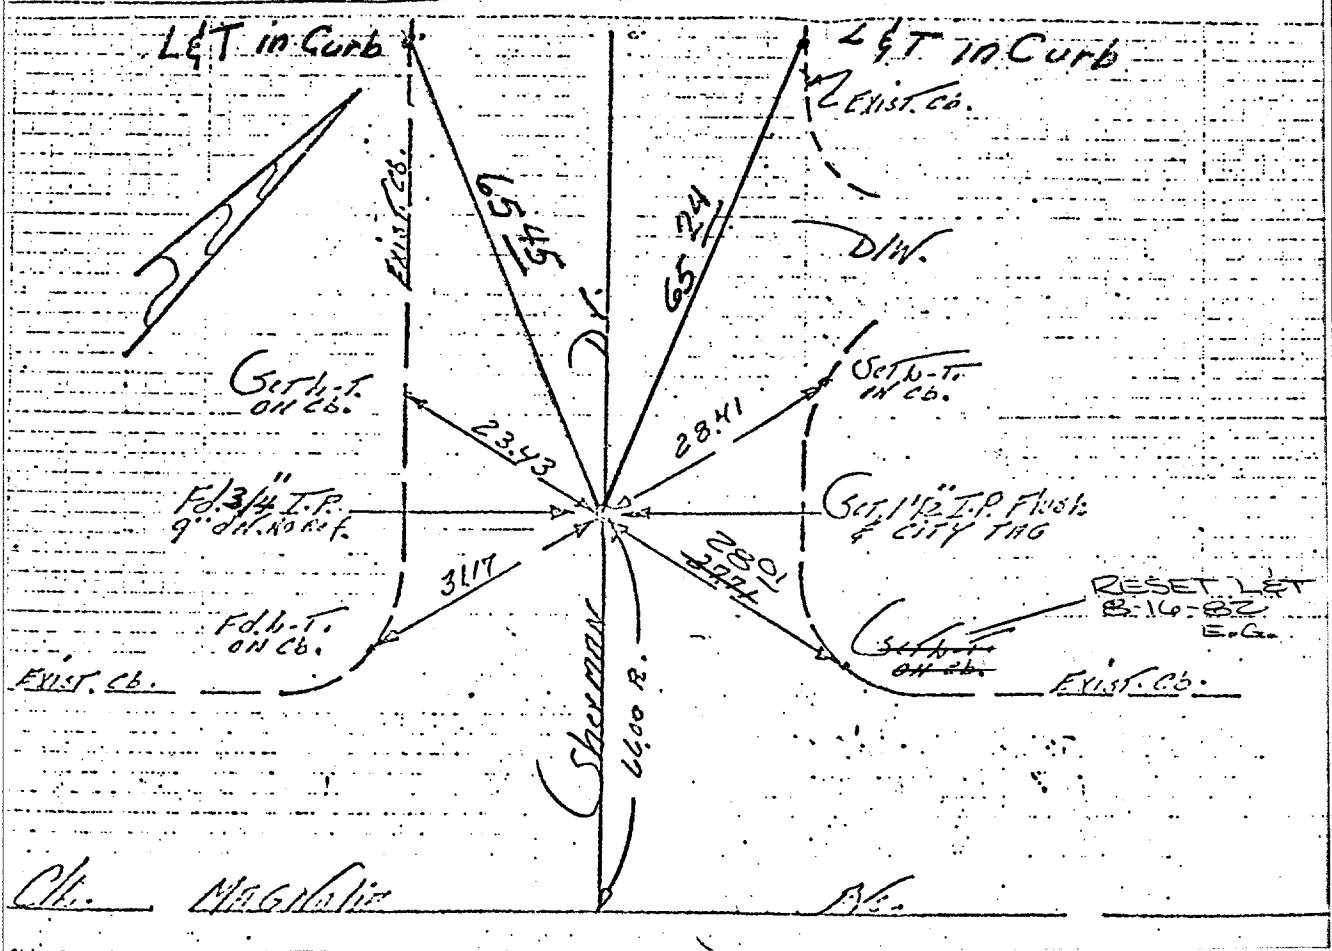 L&T in Curb
L&T in Curb
EXIST. Cb.
EXIST. Cb.
65 45
65 24
D/W.
Dr.
Set L.-T.
ON Cb.
Set L.-T.
ON Cb.
23.43
28.41
Fd. 3/4" I.P.
9" dn. No Ref.
Set 1 1/2" I.P. Flush
& CITY TAG
31.17
28 01
27.71
RESET L&T
8-16-82
E.G.
Fd. L.-T.
ON Cb.
Set L.-T.
ON Cb.
EXIST. Cb.
EXIST. Cb.
Sherman
66.00 R.
C/L. MAGNOLIA